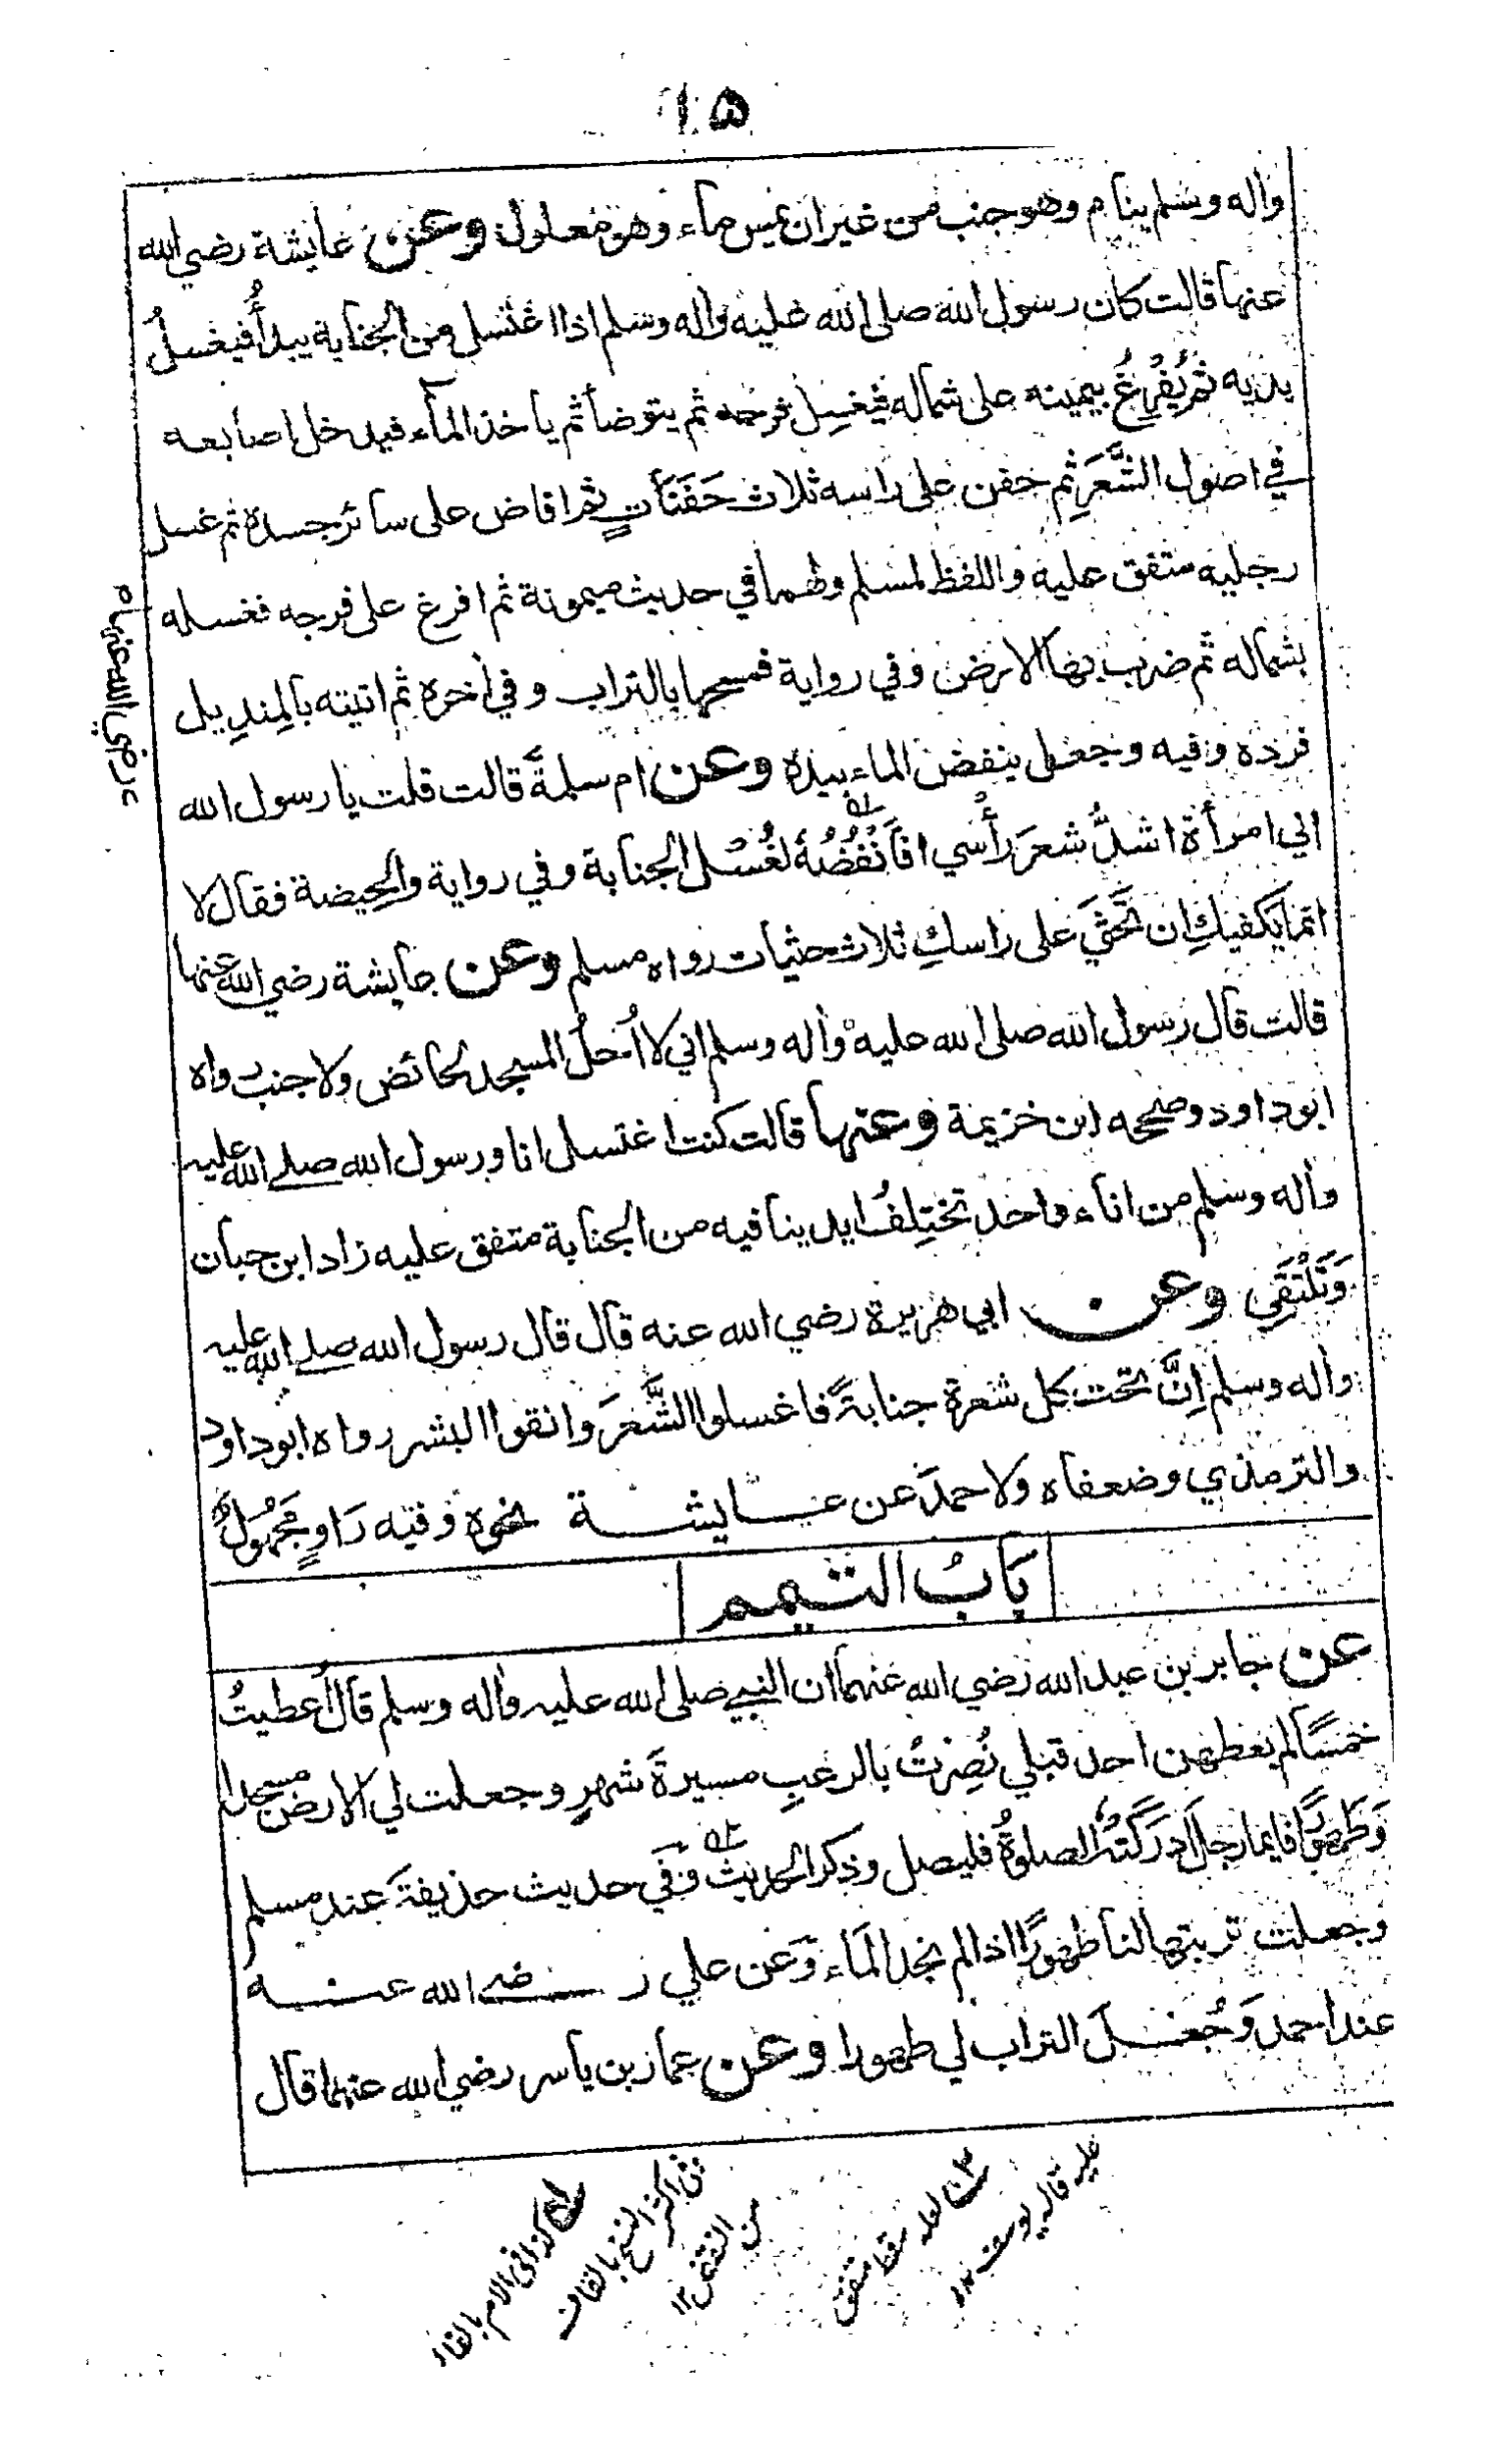 ١٥
واٰله وسلم ينام وهو جنب من غير ان يمس ماء وهو معلول وعن عايشة رضي الله
عنها قالت كان رسول الله صلى الله عليه واٰله وسلم اذا اغتسل من الجنابة يبدأُ فيغسلُ
يديه ثم يُفْرِغُ بيمينه على شماله فيغسِل فرجه ثم يتوضأ ثم ياخذ المآء فيدخل اصابعه
في اصول الشَّعَرِ ثم حفن على راسه ثلاث حَفَنَاتٍ ثم افاض على سائر جسده ثم غسل
رجليه متفق عليه واللفظ لمسلم ولهما في حديث ميمونة ثم افرغ على فرجه فغسله
بشماله ثم ضرب بها الارض وفي رواية فمسحها بالتراب وفي اٰخره ثم اتيته بالمِندِيل
فرده وفيه وجعل ينفض الماء بيده وعن ام سلمةَ قالت قلت يا رسول الله
اني امرأة اشدُّ شعرَ رأسي افأَنْقُضُهُ لغُسْل الجنابة وفي رواية والحِيضة فقال لا
انما يَكفيكِ ان تَحْثِيَ على راسكِ ثلاث حثيات رواه مسلم وعن عايشة رضي الله عنها
قالت قال رسول الله صلى الله عليه واٰله وسلم اني لا اُحلُ المسجد لحائض ولا جنب رواه
ابوداود وصححه ابن خزيمة وعنها قالت كنت اغتسل انا ورسول الله صلے الله عليه
واٰله وسلم من اناء واحد تختلِفُ ايدينا فيه من الجنابة متفق عليه زاد ابن حبان
وَتَلْتَقِي وعن ابي هريرة رضي الله عنه قال قال رسول الله صلے الله عليه
واٰله وسلم اِنَّ تحت كل شعرة جنابةً فاغسلوا الشَّعَرَ وانقوا البشر رواه ابوداود
والترمذي وضعفاه ولاحمدَ عن عايشة نحوه وفيه رَاوٍ مَجْهُولٌ
بَابُ التيمم
عن جابر بن عبد الله رضي الله عنهما ان النبي صلى الله عليه واٰله وسلم قال اُعطيتُ
خمسًا لم يعطهن احد قبلي نُصِرْتُ بالرعبِ مسيرةَ شهرٍ وجعلت لي الارض مسجدا
وَطَهُورًا فايما رجل ادركته الصلوةُ فليصل وذكر الحديث وفي حديث حذيفةَ عند مسلم
وجعلت تربتها لنا طهورًا اذا لم نجد المَاء وَعَن علي رضے الله عنه
عند احمد وَجُعِلَ التراب لي طهورا وعن عمار بن ياسر رضي الله عنهما قال
رضي الله عنها
كذا في الام بالفاء
في اكثر النسخ بالقاف
من النقض ١٢
لعله متفق
عليه قاله يوسف